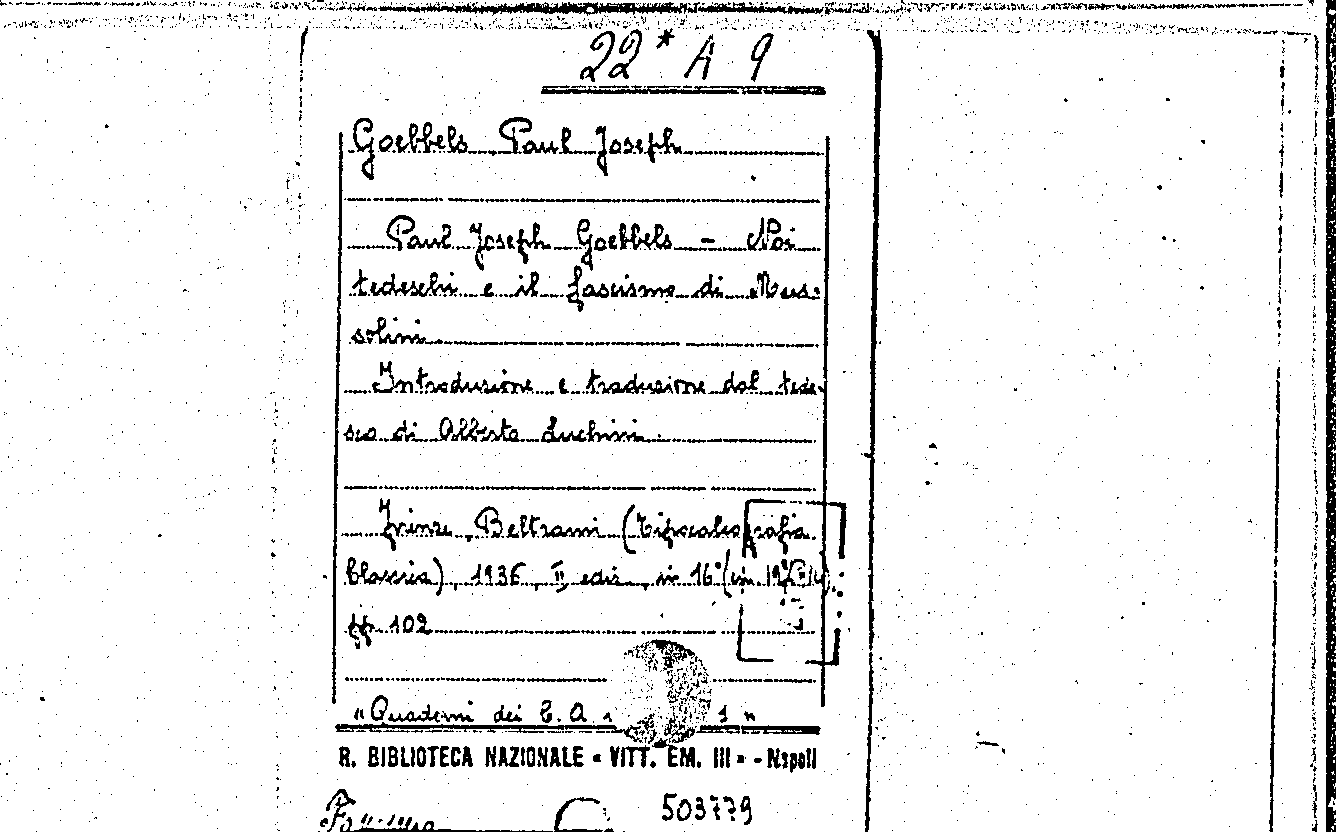 22* A 9
Goebbels Paul Joseph
Paul Joseph Goebbels - Noi
tedeschi e il fascismo di Mus-
solini.
Introduzione e traduzione dal tede-
sco di Alberto Luchini.
Firenze, Beltrami (Tipocalcografia
Classica), 1936, II ediz., in 16° (cm. 19
pp. 102
"Quaderni dei C. A. 1"
R. BIBLIOTECA NAZIONALE « VITT. EM. III » - Napoli
503779